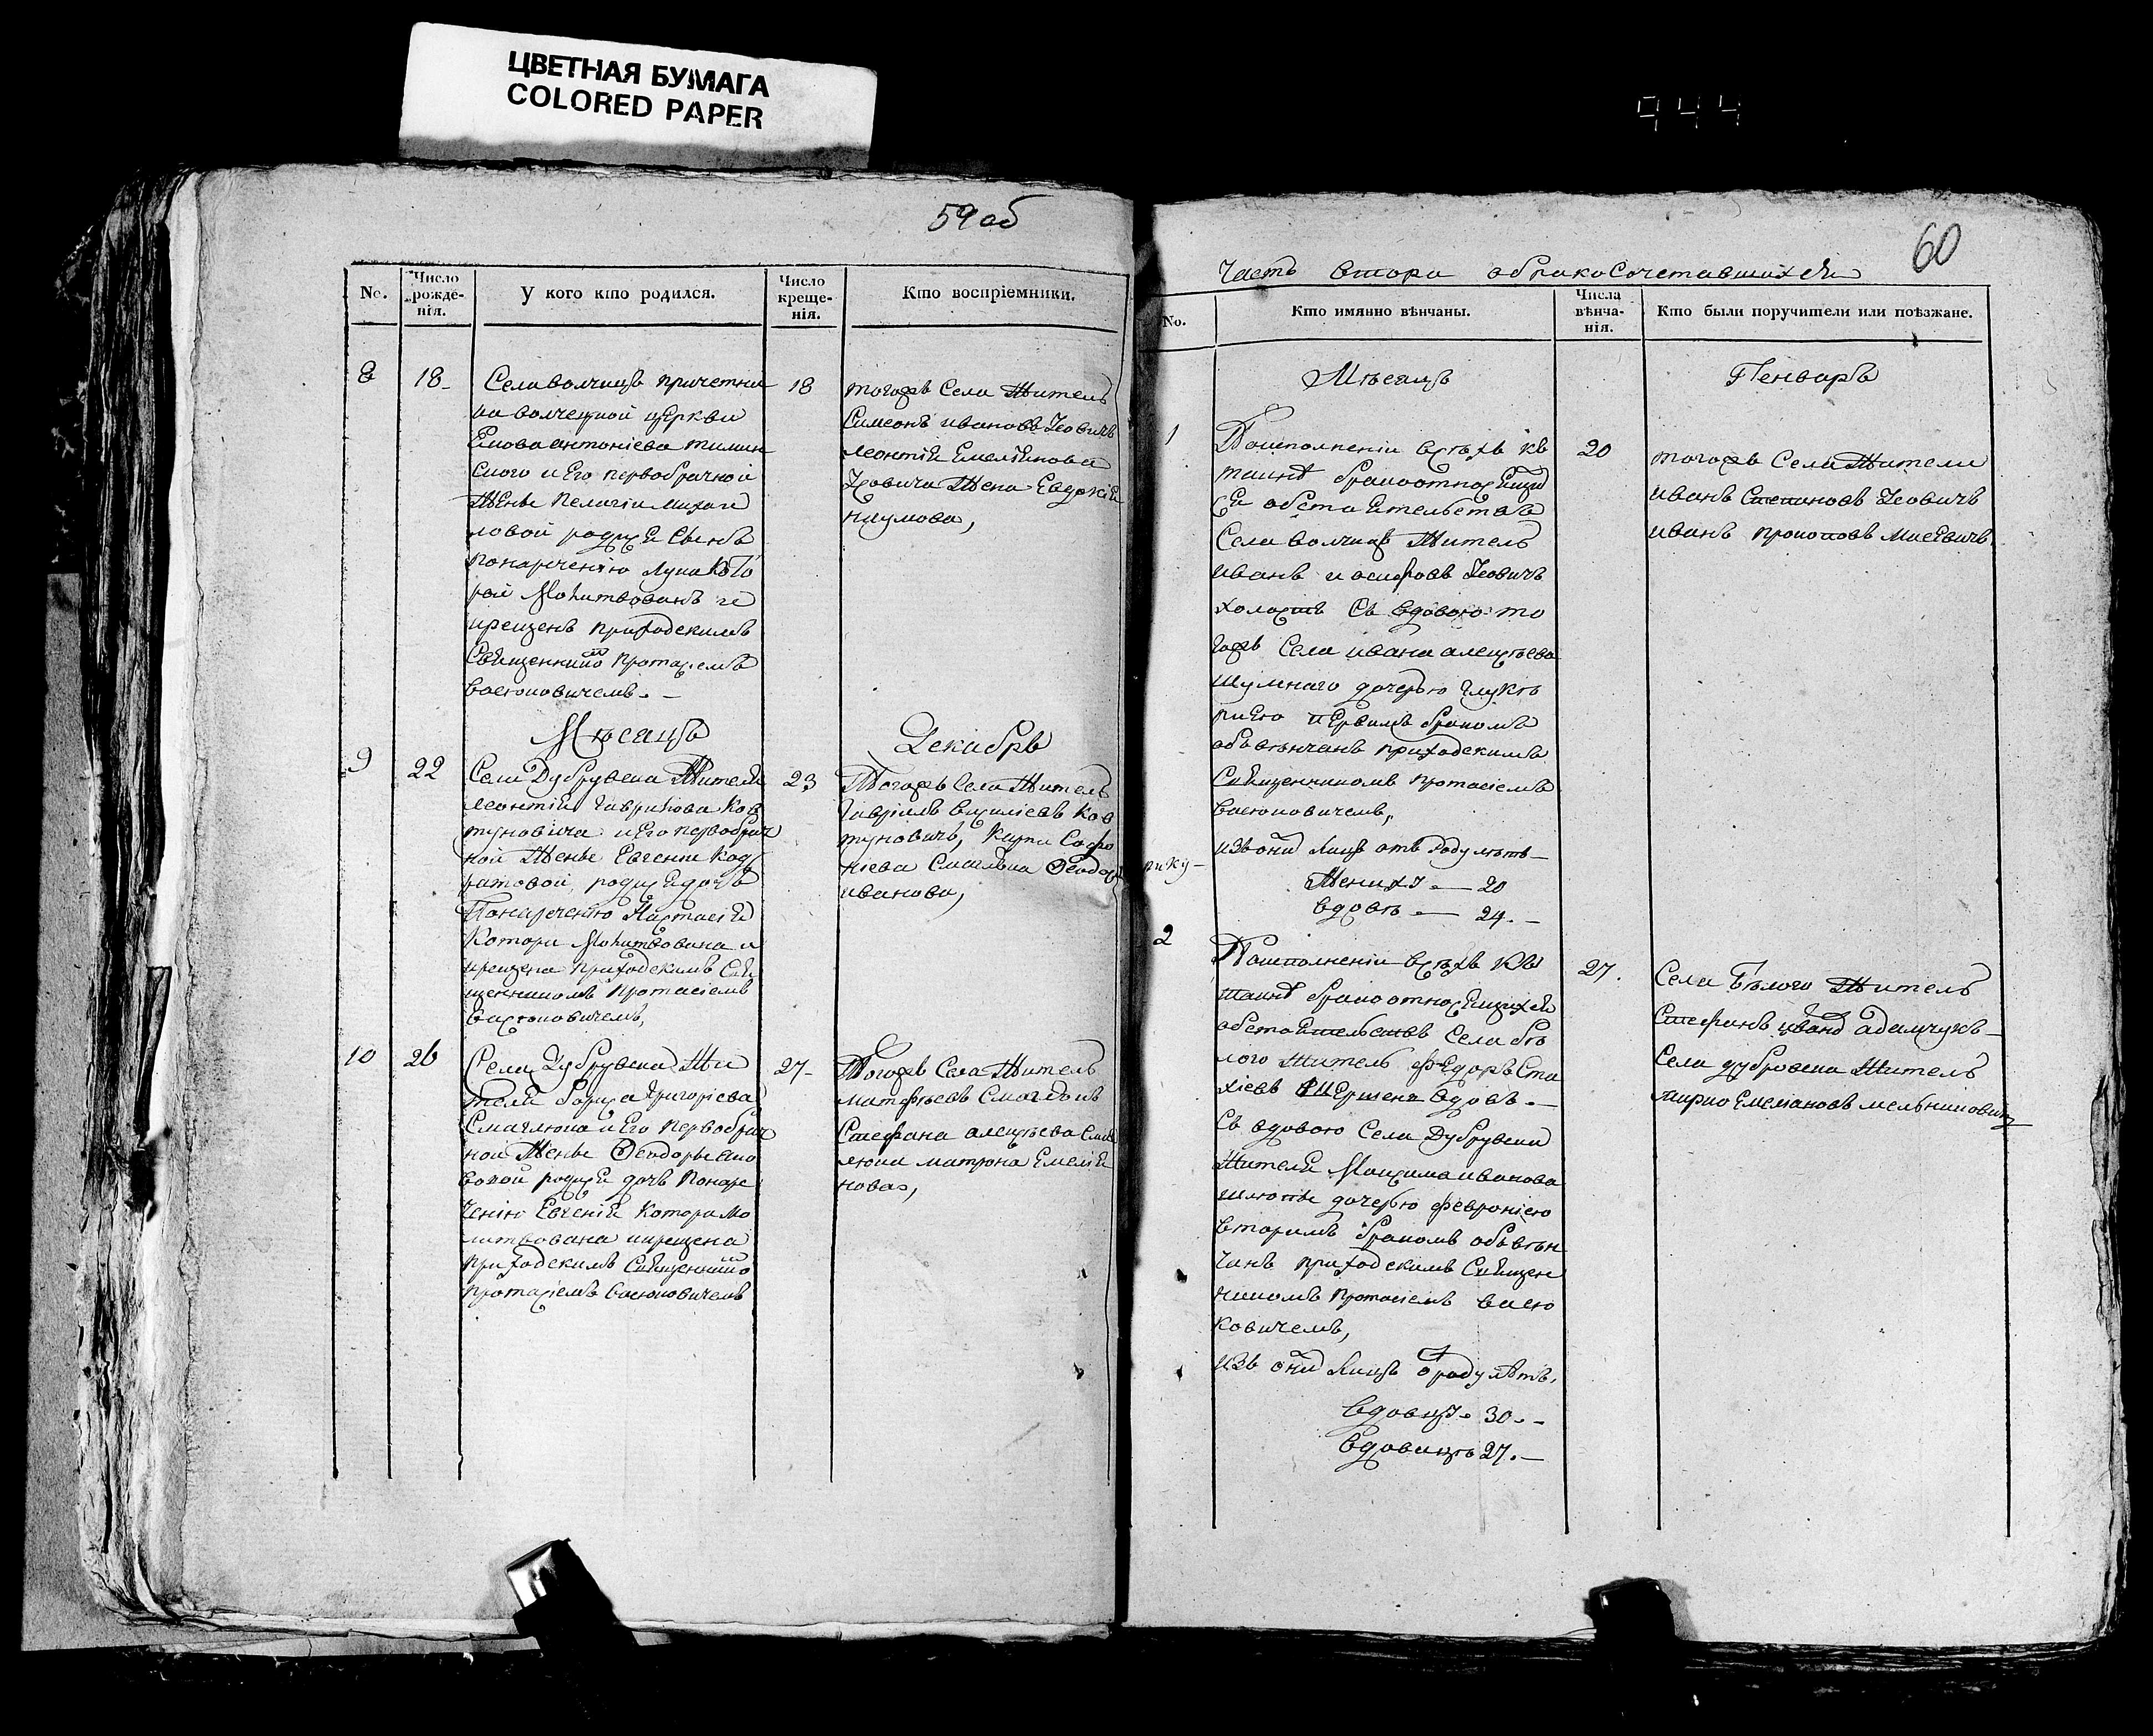 ЦВЕТНАЯ БУМАГА
COLORED PAPER
944
59 об
No.
Число рожде-нія.
У кого кто родился.
Число креще-нія.
Кто воспріемники.
8
18
Села волчицъ причетни
ка волчецкой церкви
антоніева
ского и Его первобрачной
Женѣ Пелагіи Михаи
ловой родися Сынъ
понаречению Лука Кото
рой Молитвованъ и
крещенъ приходскимъ
Священнико Протасіемъ
васюковичемъ.
18
тогожъ Села Житель
Симеонъ ивановъ
леонтія Емеліянова
Жена Евдокія
наумова,
Мѣсяцъ
Декабрь
9
22
Села Дубрувска Жителя
леонтія гаврилова Ков
туновича и Его первобрач
ной Женѣ Евгеніи Код
ратовой, родися дочъ
Понаречению Настасія
Котора Молитвована и
крещена приходскимъ Свя
щенникомъ Протасіемъ
васюковичемъ,
23
Тогожъ Села Житель
гавріилъ василіевъ Ков
туновичъ, Карпа Софро
ніева Феодора
иванова,
10
26
Села Дубрувска Жи
теля бориса Григоріева
Смаглюка и Его первобрач
ной Женѣ Феодорѣ
родися дочъ Понаре
ченію Евгенія Котора Мо
литвована икрещена
приходскимъ Священнико
протасіемъ васюковичемъ
27
Тогожъ Села Житель
матфѣевъ
Стефана алексѣева Смаг
люка матрона Емелія
нова,
60
Часть втора обракосочетавшихся
No.
Кто имянно вѣнчаны.
Числа вѣнча-нія.
Кто были поручители или поѣзжане.
Мѣсяцъ
Генваръ
1
Поисполненіи всѣхъ къ
таинъ бракоотносящи
ся обстоятельства
Села волчицъ Житель
иванъ иосифовъ
холостъ Съ вдовою то
гожъ Села ивана алексѣева
шумнаго дочерью глукѣ
рѣею первимъ бракомъ
обвѣнчанъ приходскимъ
Священникомъ протасіемъ
васюковичемъ,
изъ они Лицъ отъ Роду лѣтъ
Жениху 20
вдовѣ 24.
20
тогожъ Села Жители
иванъ Степановъ
иванъ прокоповъ
2
Поисполненіи всѣхъ къ
таинъ бракоотносящихся
обстоятельствъ Села бѣ
лого Житель федоръ Ста
хіевъ вдовъ.
Съ вдовою Села Дубрувска
Жителя Максима иванова
дочерью февроніею
вторимъ бракомъ обвѣн
чанъ приходскимъ Священ
никомъ Протасіемъ васю
ковичемъ,
изъ они Лицъ о роду лѣтъ.
вдовцу 30.
вдовицѣ 27.
27.
Села Бѣлого Житель
Стефанъ адамчукъ
Села дубровска Житель
Емеліановъ мельниковичъ